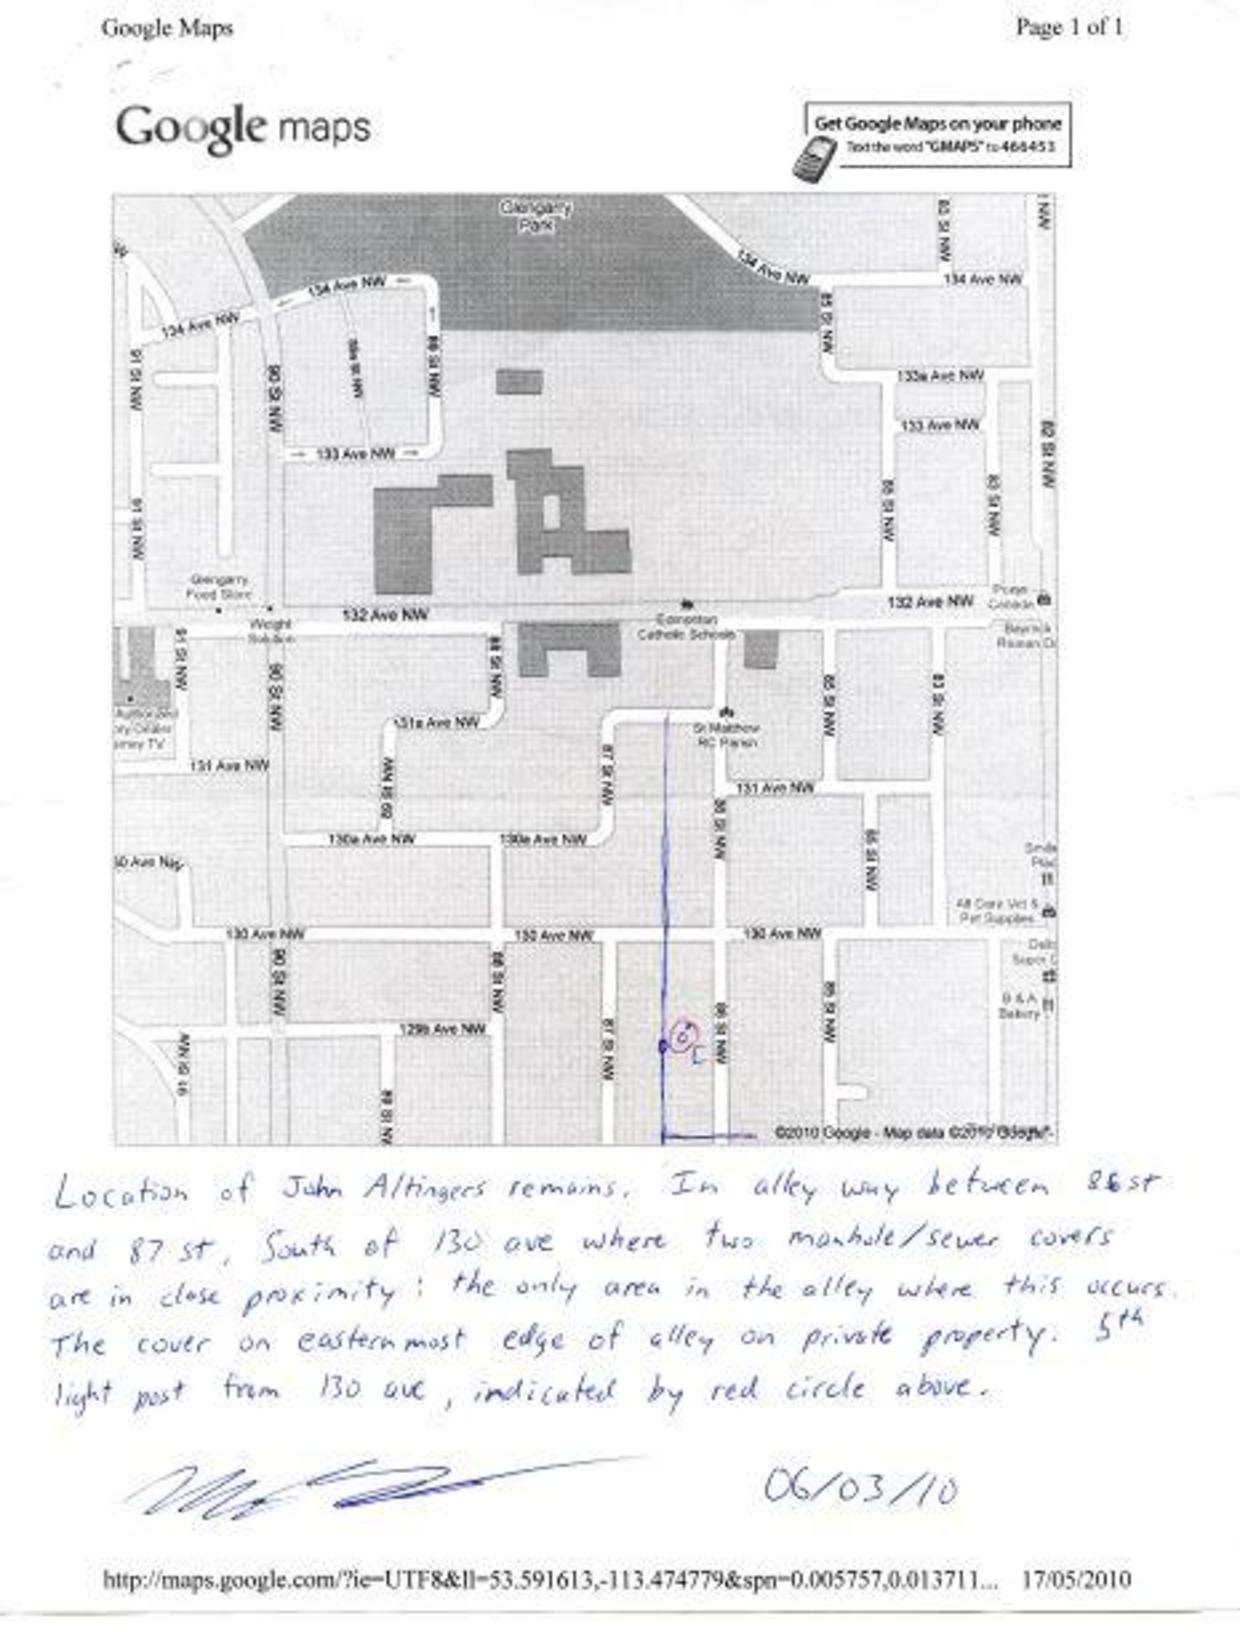 Google Maps
Page 1 of 1
Google maps
Get Google Maps on your phone
Text the word "GMAPS" to 466453
Glengarry
Park
134 Ave NW
83 St NW
134 Ave NW
134 Ave NW
134 Ave NW
85 St NW
91 St NW
90 St NW
133a Ave NW
133 Ave NW
133 Ave NW
82 St NW
91 St NW
83 St NW
Glengarry
Food Store
132 Ave NW
132 Ave NW
Weight
Edmonton
Catholic Schools
91 St NW
90 St NW
88 St NW
85 St NW
83 St NW
131a Ave NW
St Matthew
RC Parish
131 Ave NW
89 St NW
87 St NW
131 Ave NW
130a Ave NW
130a Ave NW
86 St NW
All Care Vet &
Pet Supplies
130 Ave NW
130 Ave NW
130 Ave NW
90 St NW
88 St NW
85 St NW
B & A
Bakery
129b Ave NW
91 St NW
87 St NW
86 St NW
©2010 Google - Map data ©2010 Google -
Location of John Altingers remains. In alley way between 86 st
and 87 st, South of 130 ave where two manhole/sewer covers
are in close proximity: the only area in the alley where this occurs.
The cover on easternmost edge of alley on private property. 5th
light post from 130 ave, indicated by red circle above.
06/03/10
http://maps.google.com/?ie=UTF8&ll=53.591613,-113.474779&spn=0.005757,0.013711... 17/05/2010